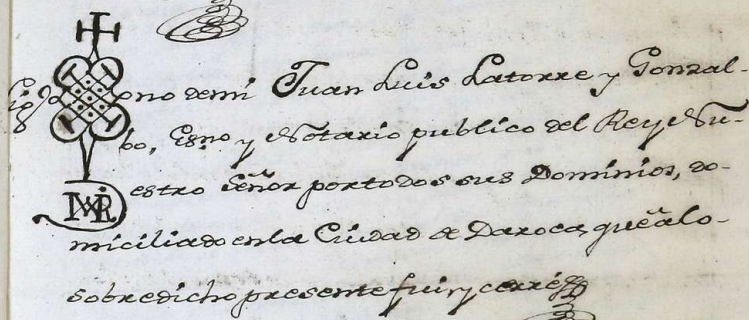 Sig no de mi Juan Luis Latorre y Gonzal-
bo, Esno y Notario publico del Rey Nu-
estro Señor por todos sus Dominios, do-
miciliado en la Ciudad de Daroca, que a lo
sobredicho presente fui, y cerré